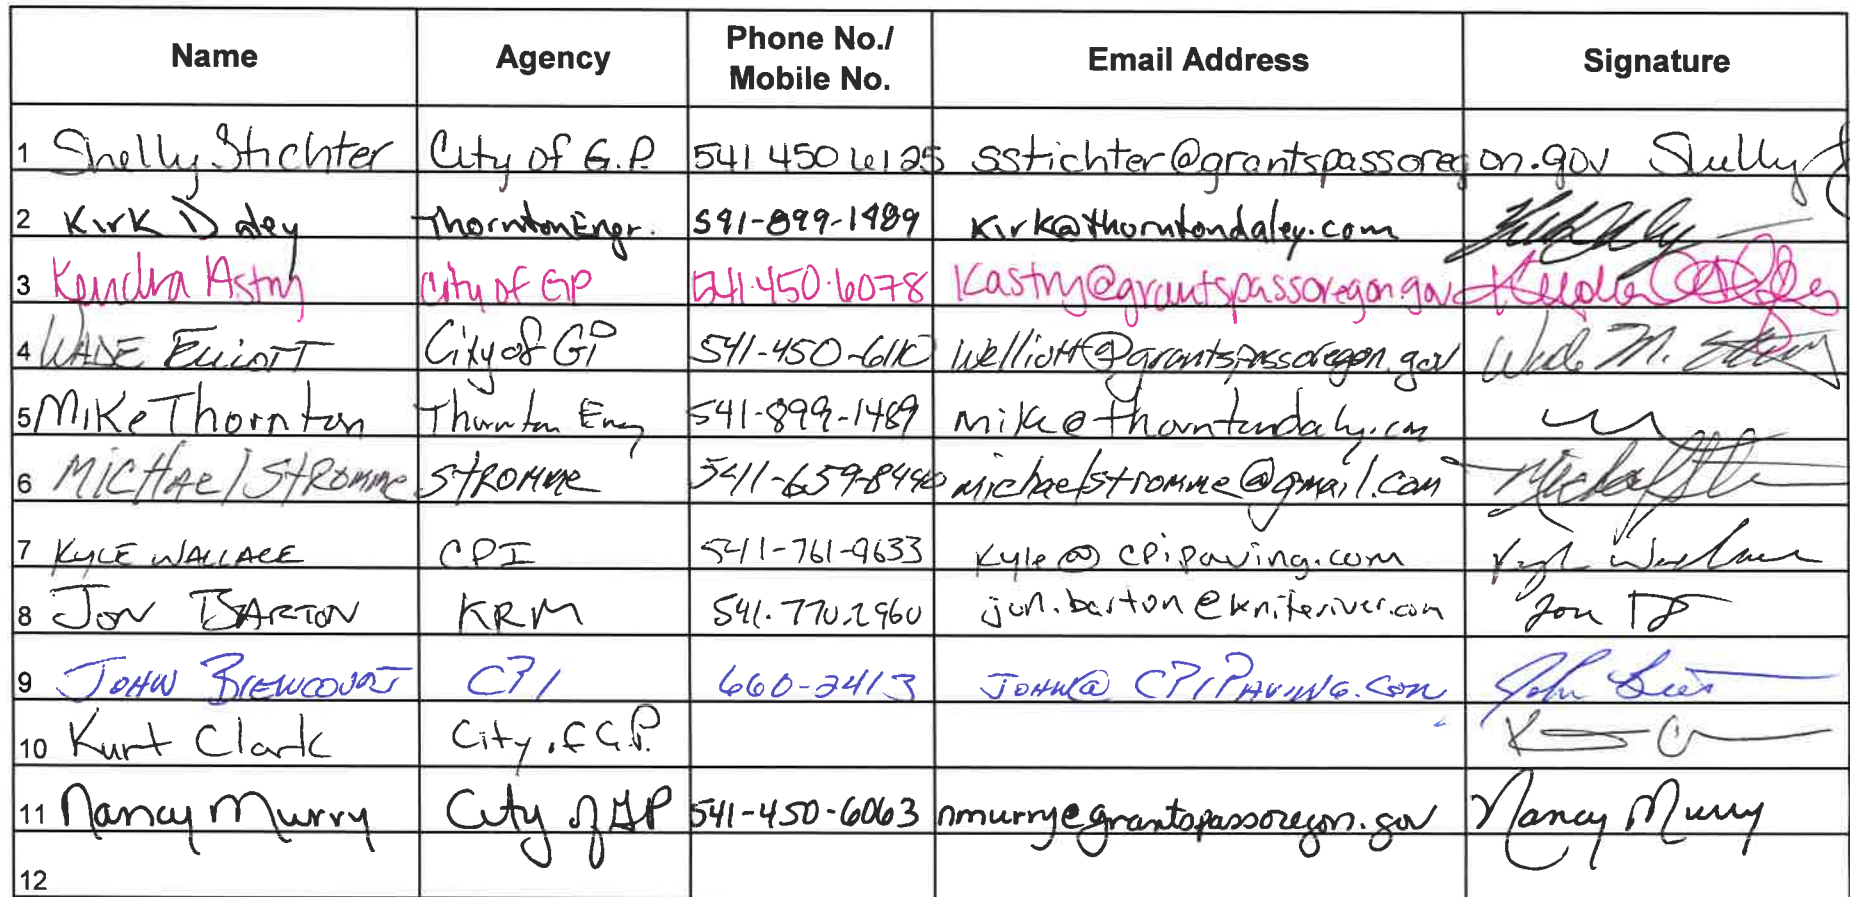 Name Agency Phone No./ Mobile No. Email Address Signature
1 Shelly Stichter City of G.P. 541 450 6125 sstichter@grantspassoregon.gov Shelly
2 Kirk Daley Thornton Engr. 541-899-1489 Kirk@thorntondaley.com
3 Kendra Astry City of GP 541-450-6078 Kastry@grantspassoregon.gov
4 WADE ElliOTT City of GP 541-450-6110 Welliott@grantspassoregon.gov Wade M.
5 Mike Thornton Thornton Eng 541-899-1489 mike@thorntondaley.com
6 MICHAel STROMME STROMME 541-659-8440 michaelstromme@gmail.com
7 KYLE WALLACE CPI 541-761-9633 Kyle@CPipaving.com Kyle Wallace
8 JON BARTON KRM 541.770.2960 jon.barton@kniferiver.com Jon B
9 JOHN CPI 660-2413 JOHN@CPIPAVING.COM John
10 Kurt Clark City of G.P.
11 Nancy Murry City of GP 541-450-6063 nmurry@grantspassoregon.gov Nancy Murry
12